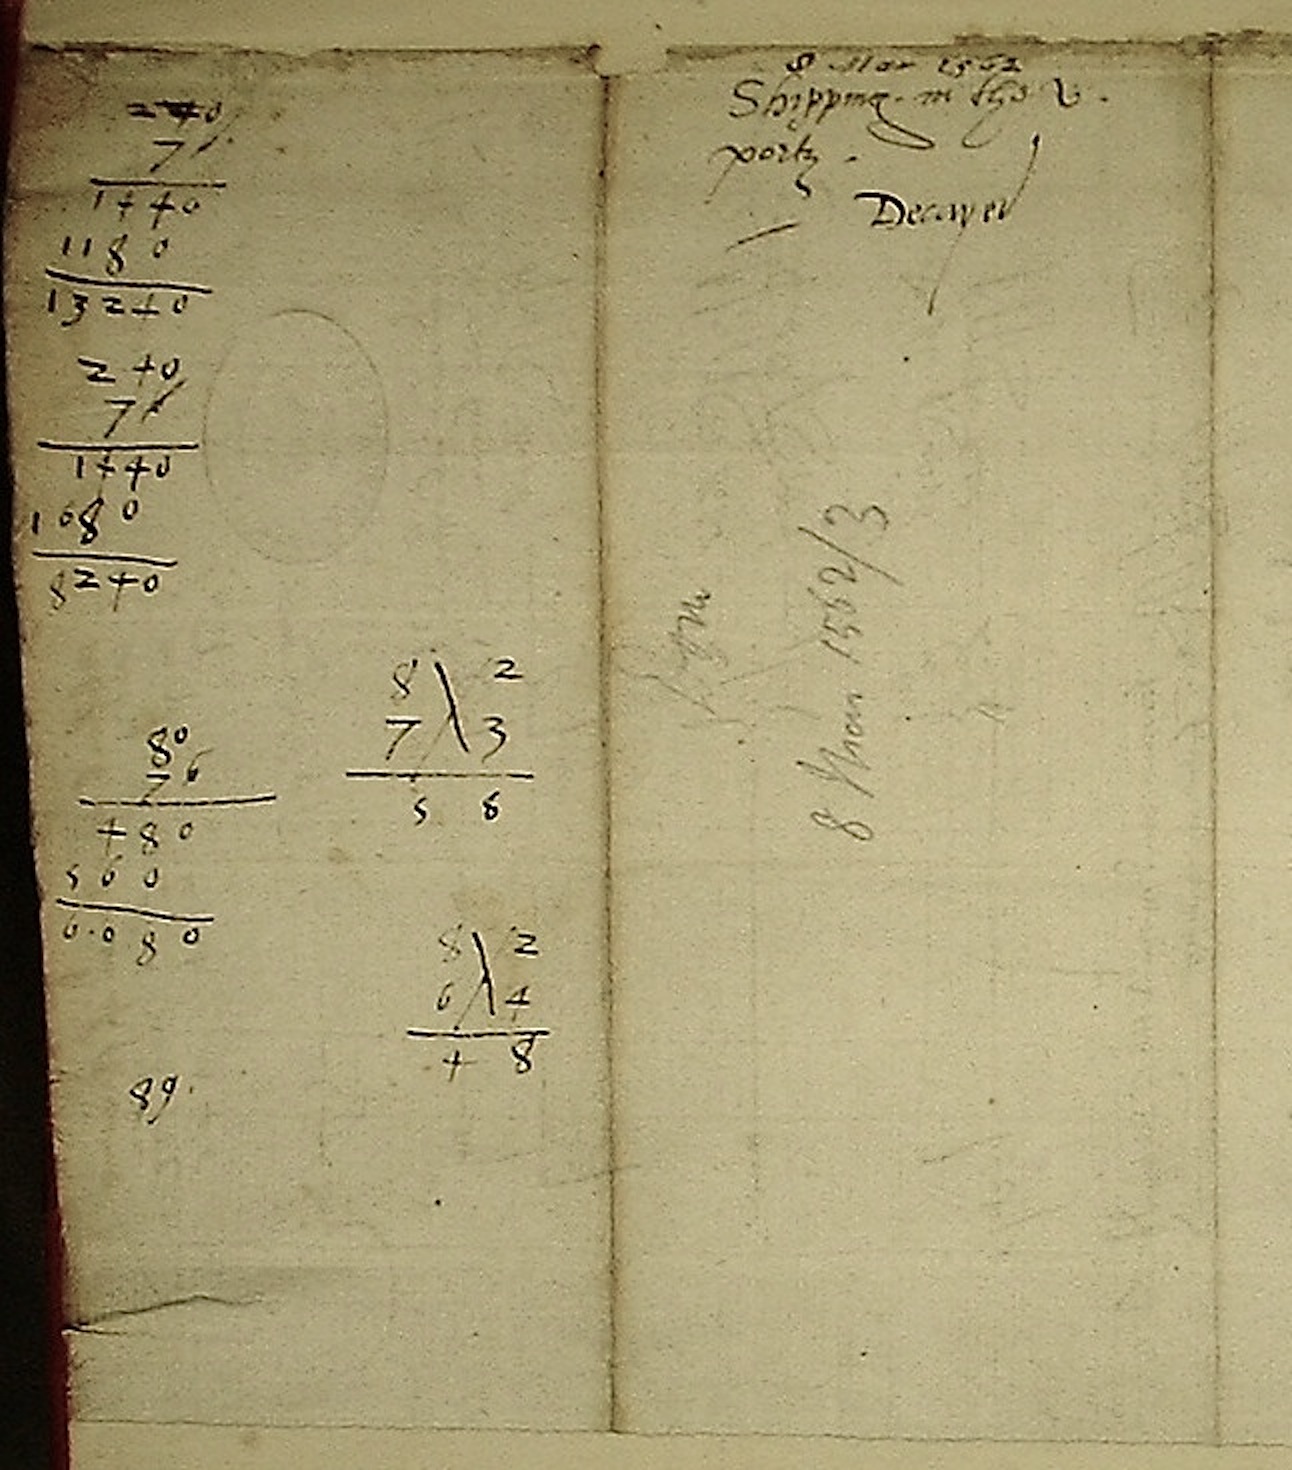 240
7
1440
1180
13240
240
7
1440
1680
8240
80
76
480
560
6080
89.
8 2
7 3
5 6
8 2
6 4
4 8
8 Mar 1562
Shipping in the v.
portz.
Decayed
8 March 1562/3